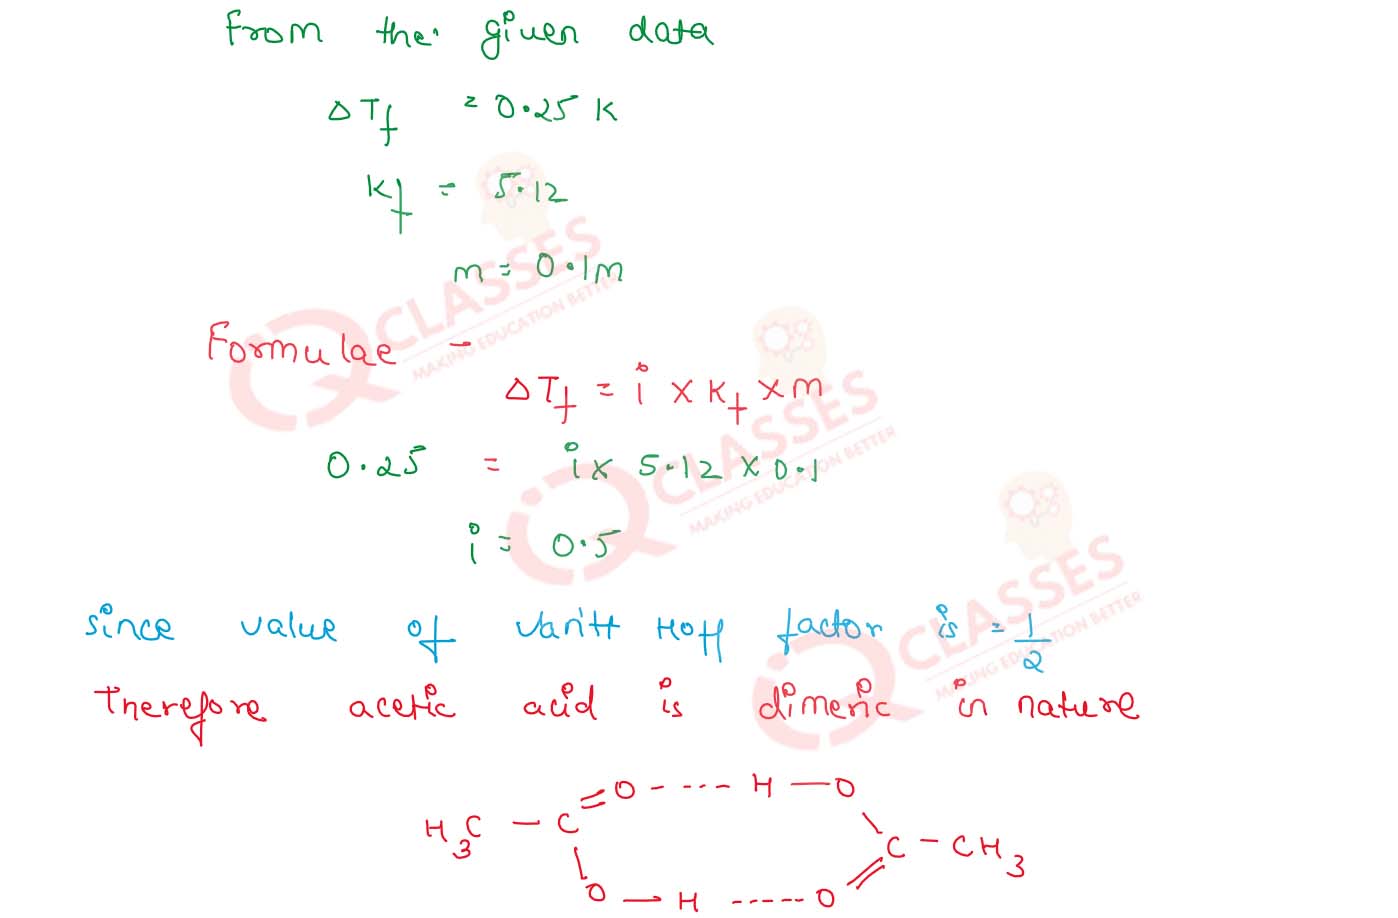 From the given data
ΔTf = 0.25 K
Kf = 5.12
m = 0.1m
Formulae -
ΔTf = i x Kf x m
0.25 = i x 5.12 x 0.1
i = 0.5
since value of Van'tt Hoff factor is = 1/2
Therefore acetic acid is dimeric in nature
H3C - C =O ---- H - O
C - CH3
O - H ----- O
iQ CLASSES
MAKING EDUCATION BETTER
iQ CLASSES
MAKING EDUCATION BETTER
iQ CLASSES
MAKING EDUCATION BETTER